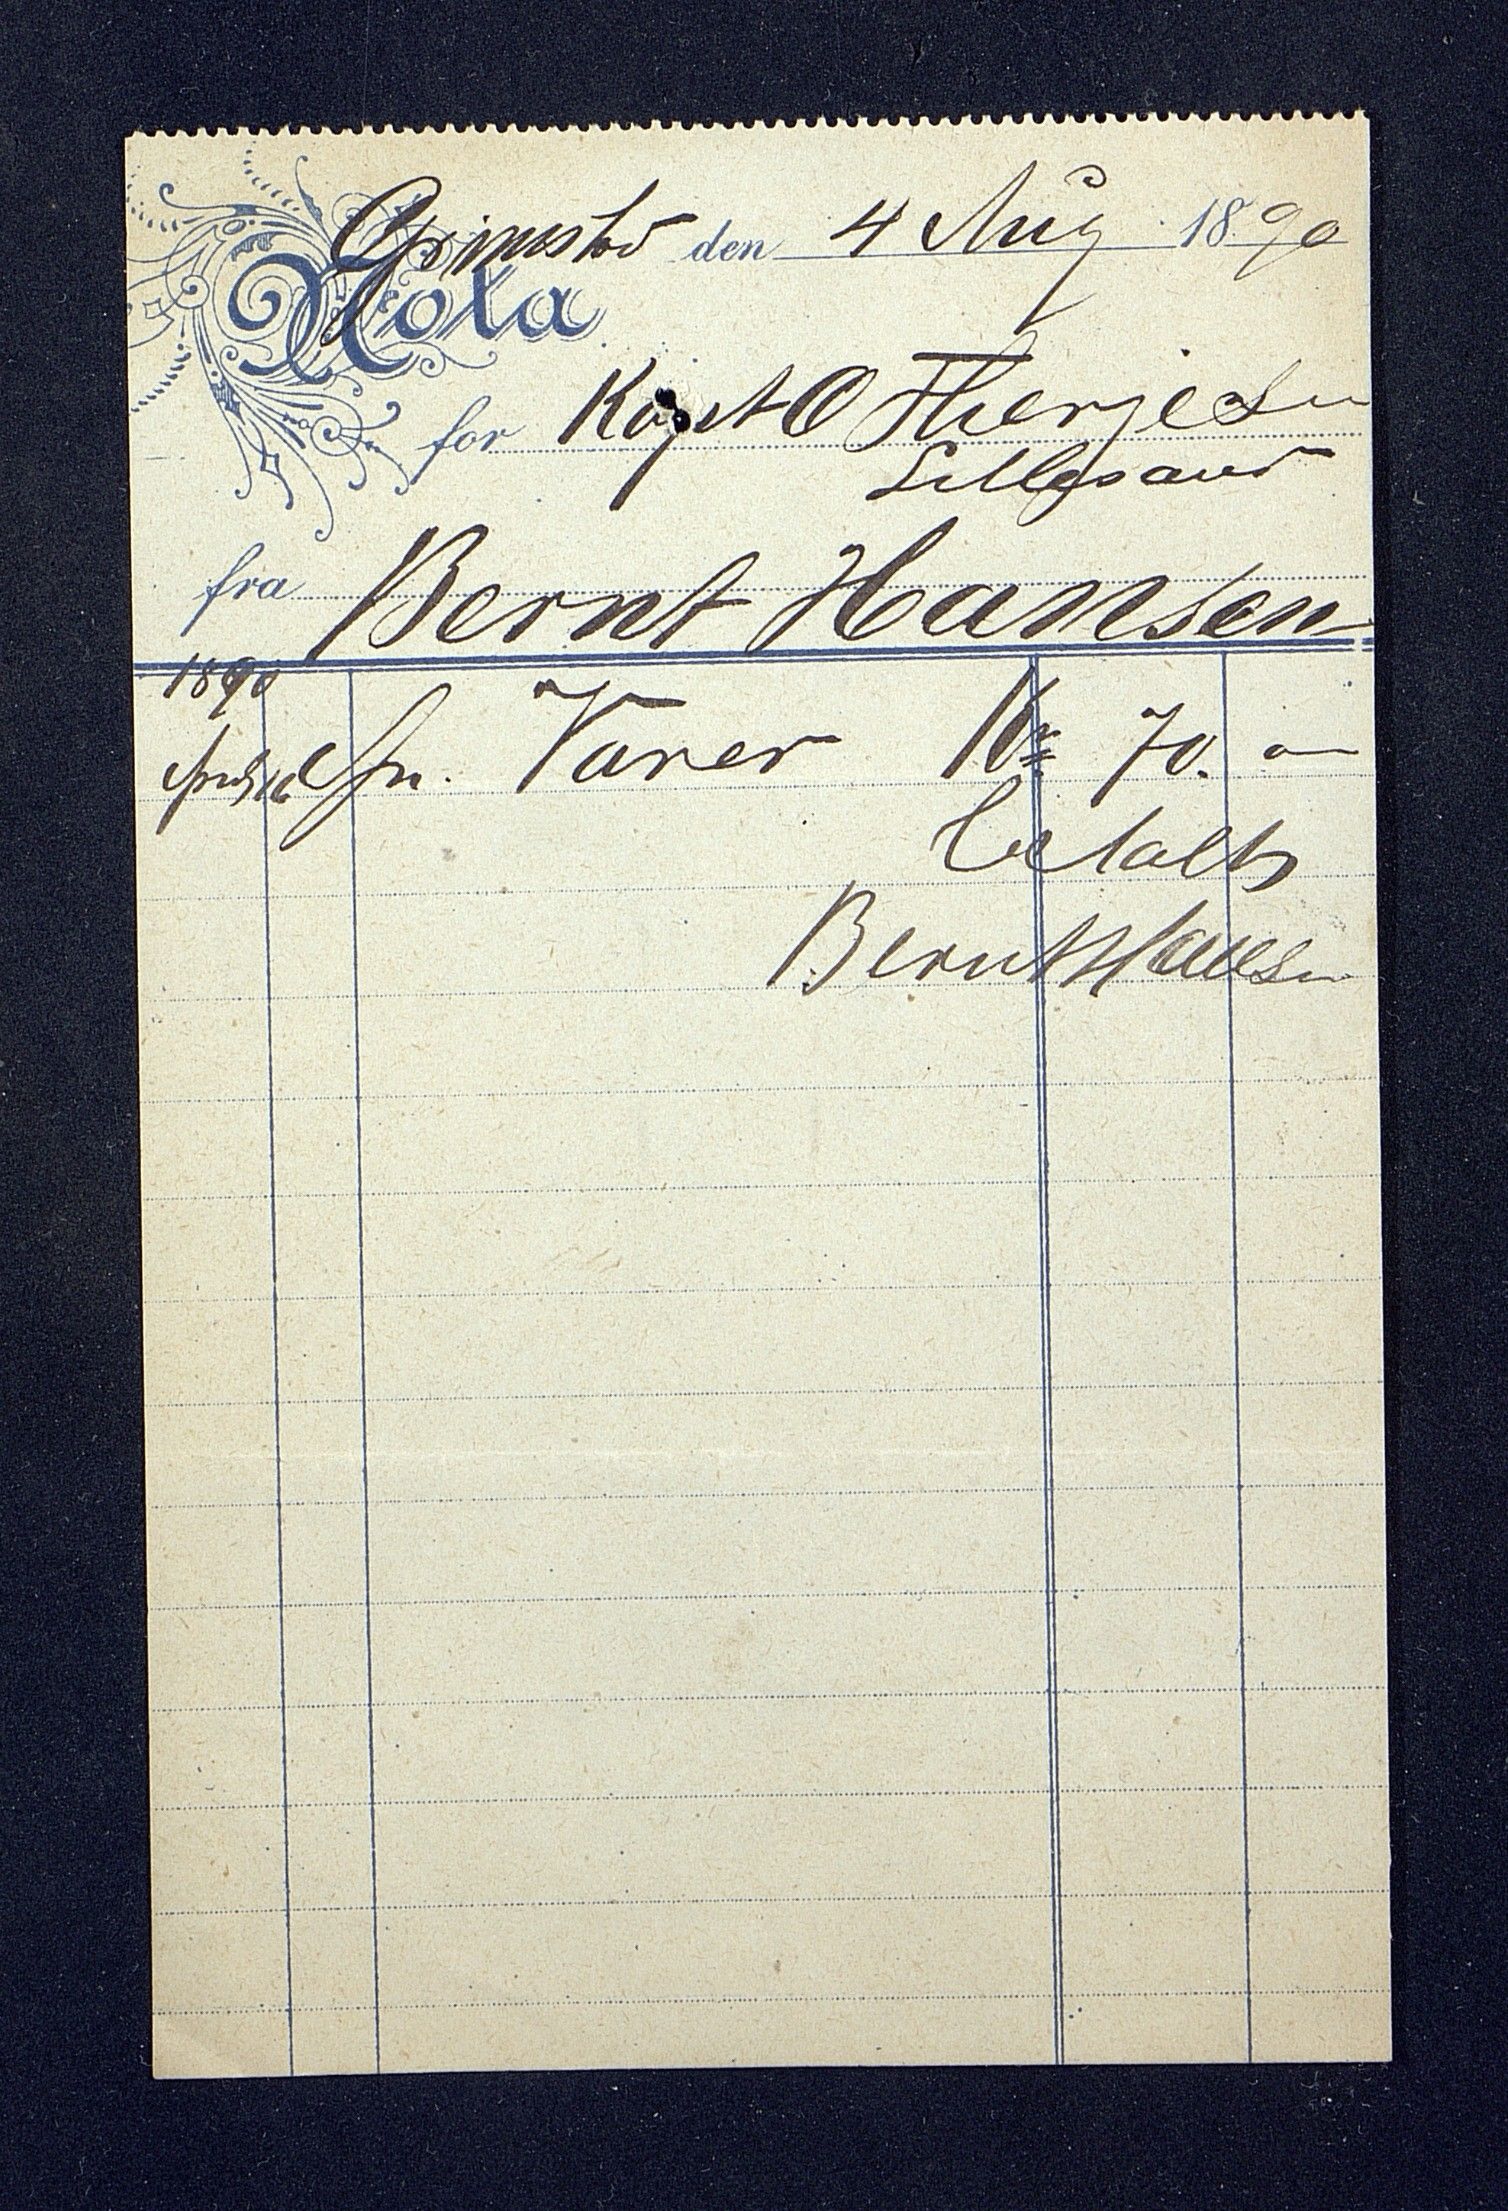 Grimstad den 4 Aug 1890
Nota
for Kapt O Therjesen
Lillesand
fra Bernt Hansen
1890
April 16 Varer Kr 70. "
betalt
Bernt Hansen